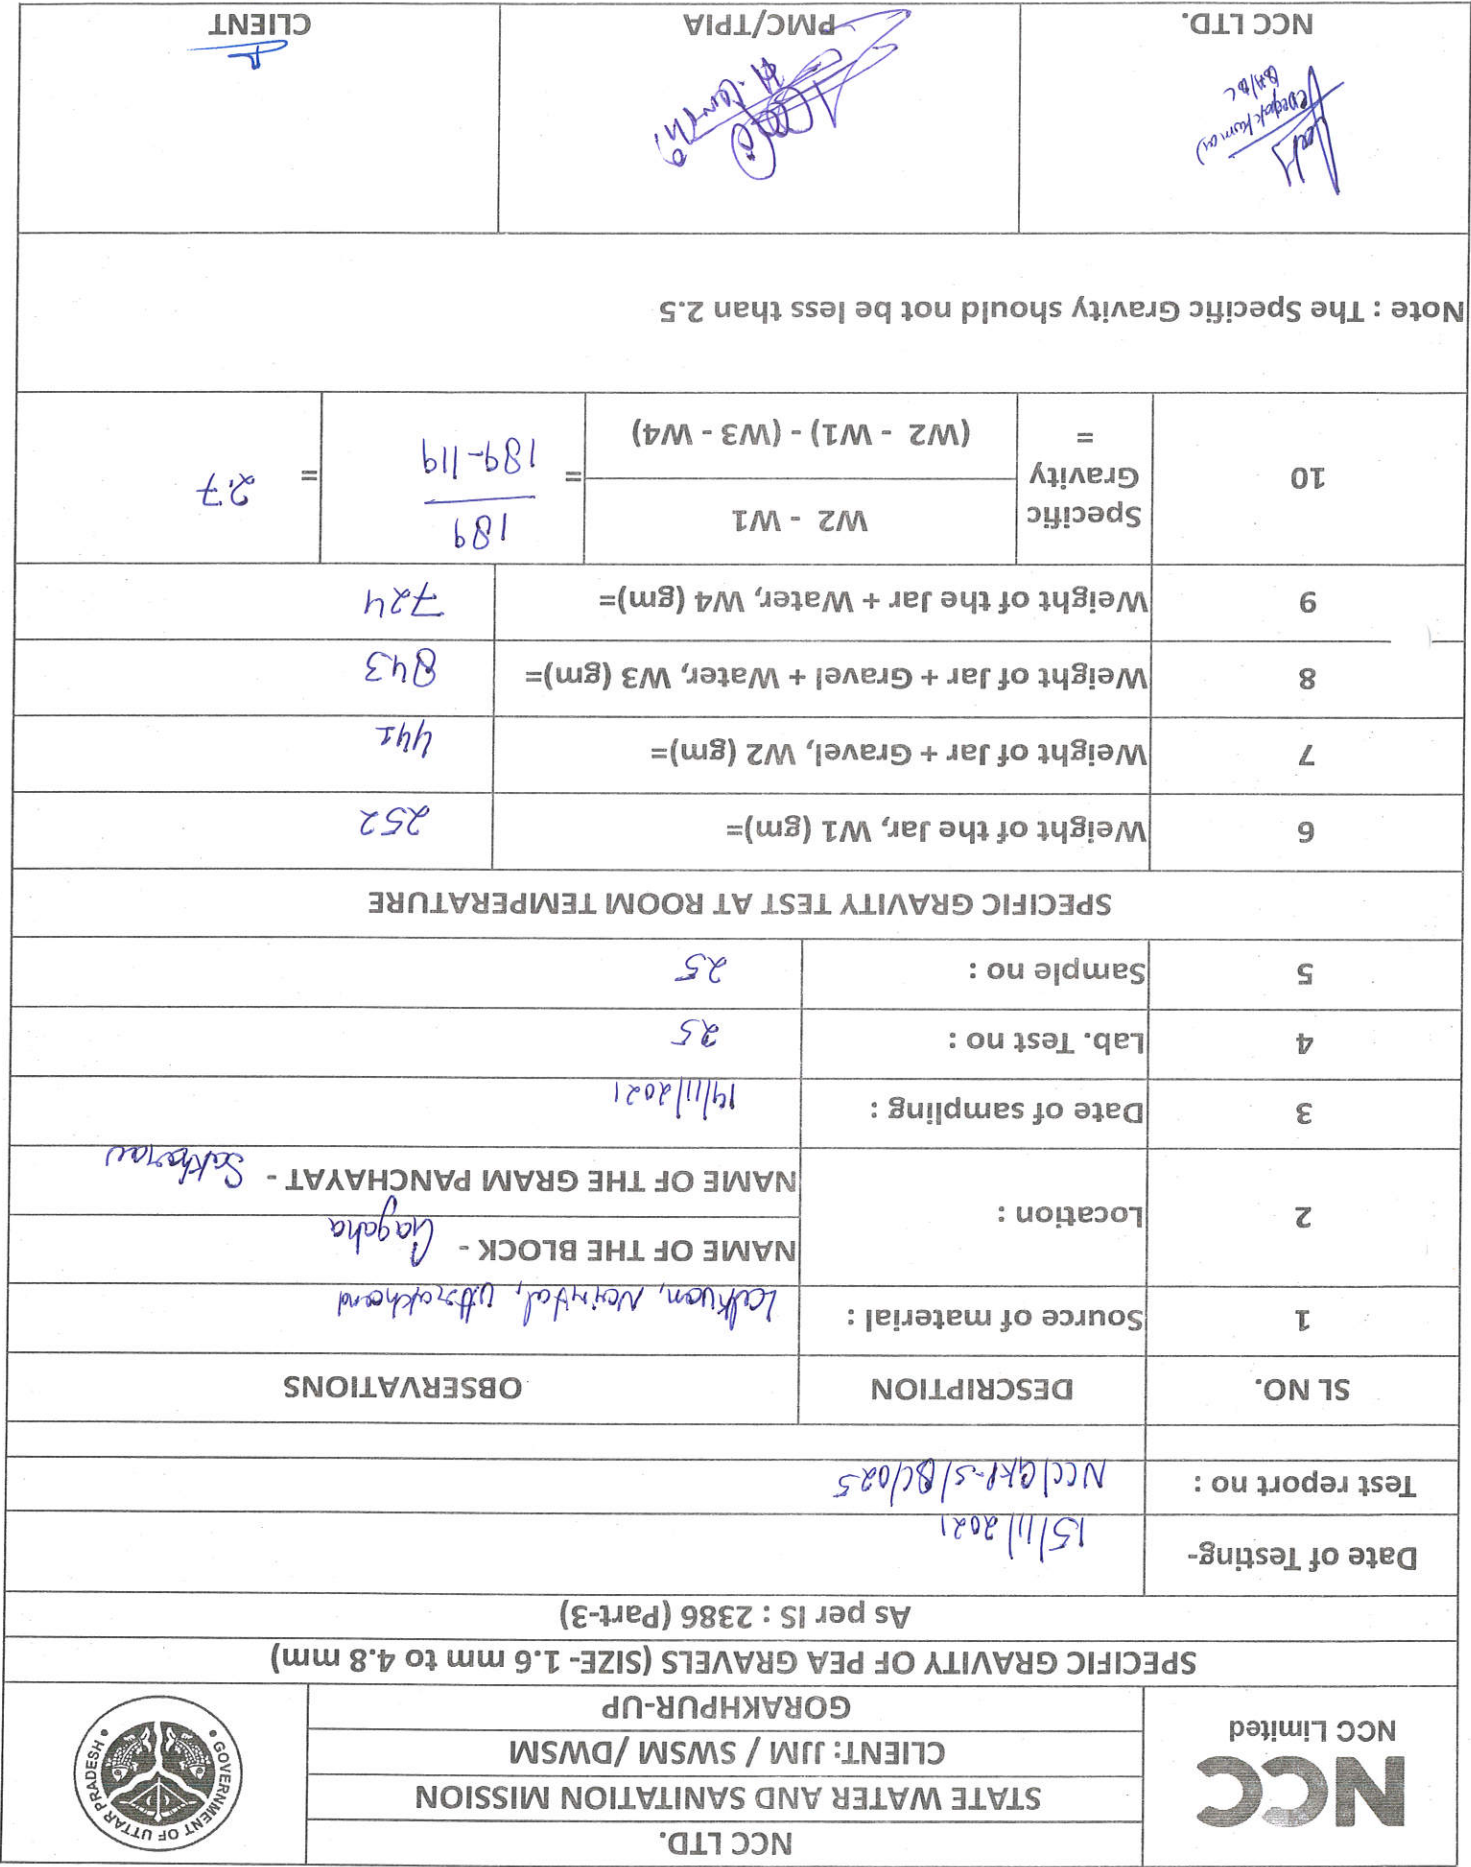 NCC LTD.
STATE WATER AND SANITATION MISSION
CLIENT: JJM / SWSM /DWSM
GORAKHPUR-UP
NCC
NCC Limited
GOVERNMENT OF UTTAR PRADESH
SPECIFIC GRAVITY OF PEA GRAVELS (SIZE- 1.6 mm to 4.8 mm)
As per IS : 2386 (Part-3)
Date of Testing- 15/11/2021
Test report no : NCC/GKP-S/BC/025
SL NO. DESCRIPTION OBSERVATIONS
1 Source of material : Lalkuan, Nainital, Uttrakhand
2 Location : NAME OF THE BLOCK - Gagaha
NAME OF THE GRAM PANCHAYAT -
3 Date of sampling : 14/11/2021
4 Lab. Test no : 25
5 Sample no : 25
SPECIFIC GRAVITY TEST AT ROOM TEMPERATURE
6 Weight of the Jar, W1 (gm)= 252
7 Weight of Jar + Gravel, W2 (gm)= 441
8 Weight of Jar + Gravel + Water, W3 (gm)= 843
9 Weight of the Jar + Water, W4 (gm)= 724
10 Specific Gravity =
W2 - W1
(W2 - W1) - (W3 - W4)
=
189
189-119
= 2.7
Note : The Specific Gravity should not be less than 2.5
NCC LTD. PMC/TPIA CLIENT